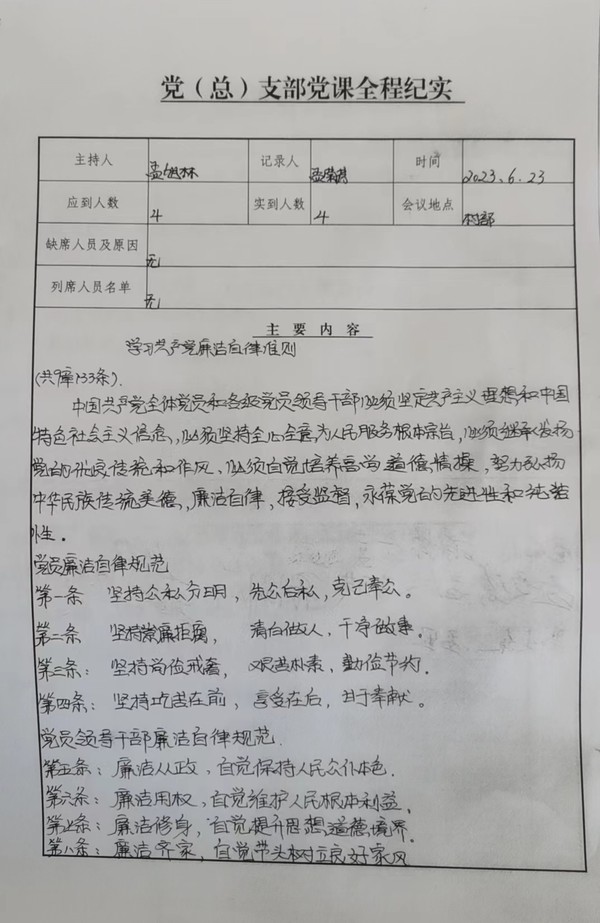 党（总）支部党课全程纪实
主持人 孟旭林 记录人 时间 2023.6.23
应到人数 4 实到人数 4 会议地点 村部
缺席人员及原因 无
列席人员名单 无
主要内容
学习共产党廉洁自律准则
中国共产党全体党员和各级党员领导干部必须坚定共产主义理想和中国
特色社会主义信念，必须坚持全心全意为人民服务根本宗旨，必须继承发扬
党的优良传统和作风，必须自觉培养高尚道德情操，努力弘扬
中华民族传统美德，廉洁自律，接受监督，永葆党的先进性和纯洁
性。
党员廉洁自律规范
第一条 坚持公私分明，先公后私，克己奉公。
第二条 坚持崇廉拒腐，清白做人，干净做事。
第三条：坚持尚俭戒奢，艰苦朴素，勤俭节约。
第四条：坚持吃苦在前，享受在后，甘于奉献。
党员领导干部廉洁自律规范.
第五条：廉洁从政，自觉保持人民公仆本色.
第六条：廉洁用权，自觉维护人民根本利益.
第七条：廉洁修身，自觉提升思想道德境界.
第八条：廉洁齐家，自觉带头树立良好家风